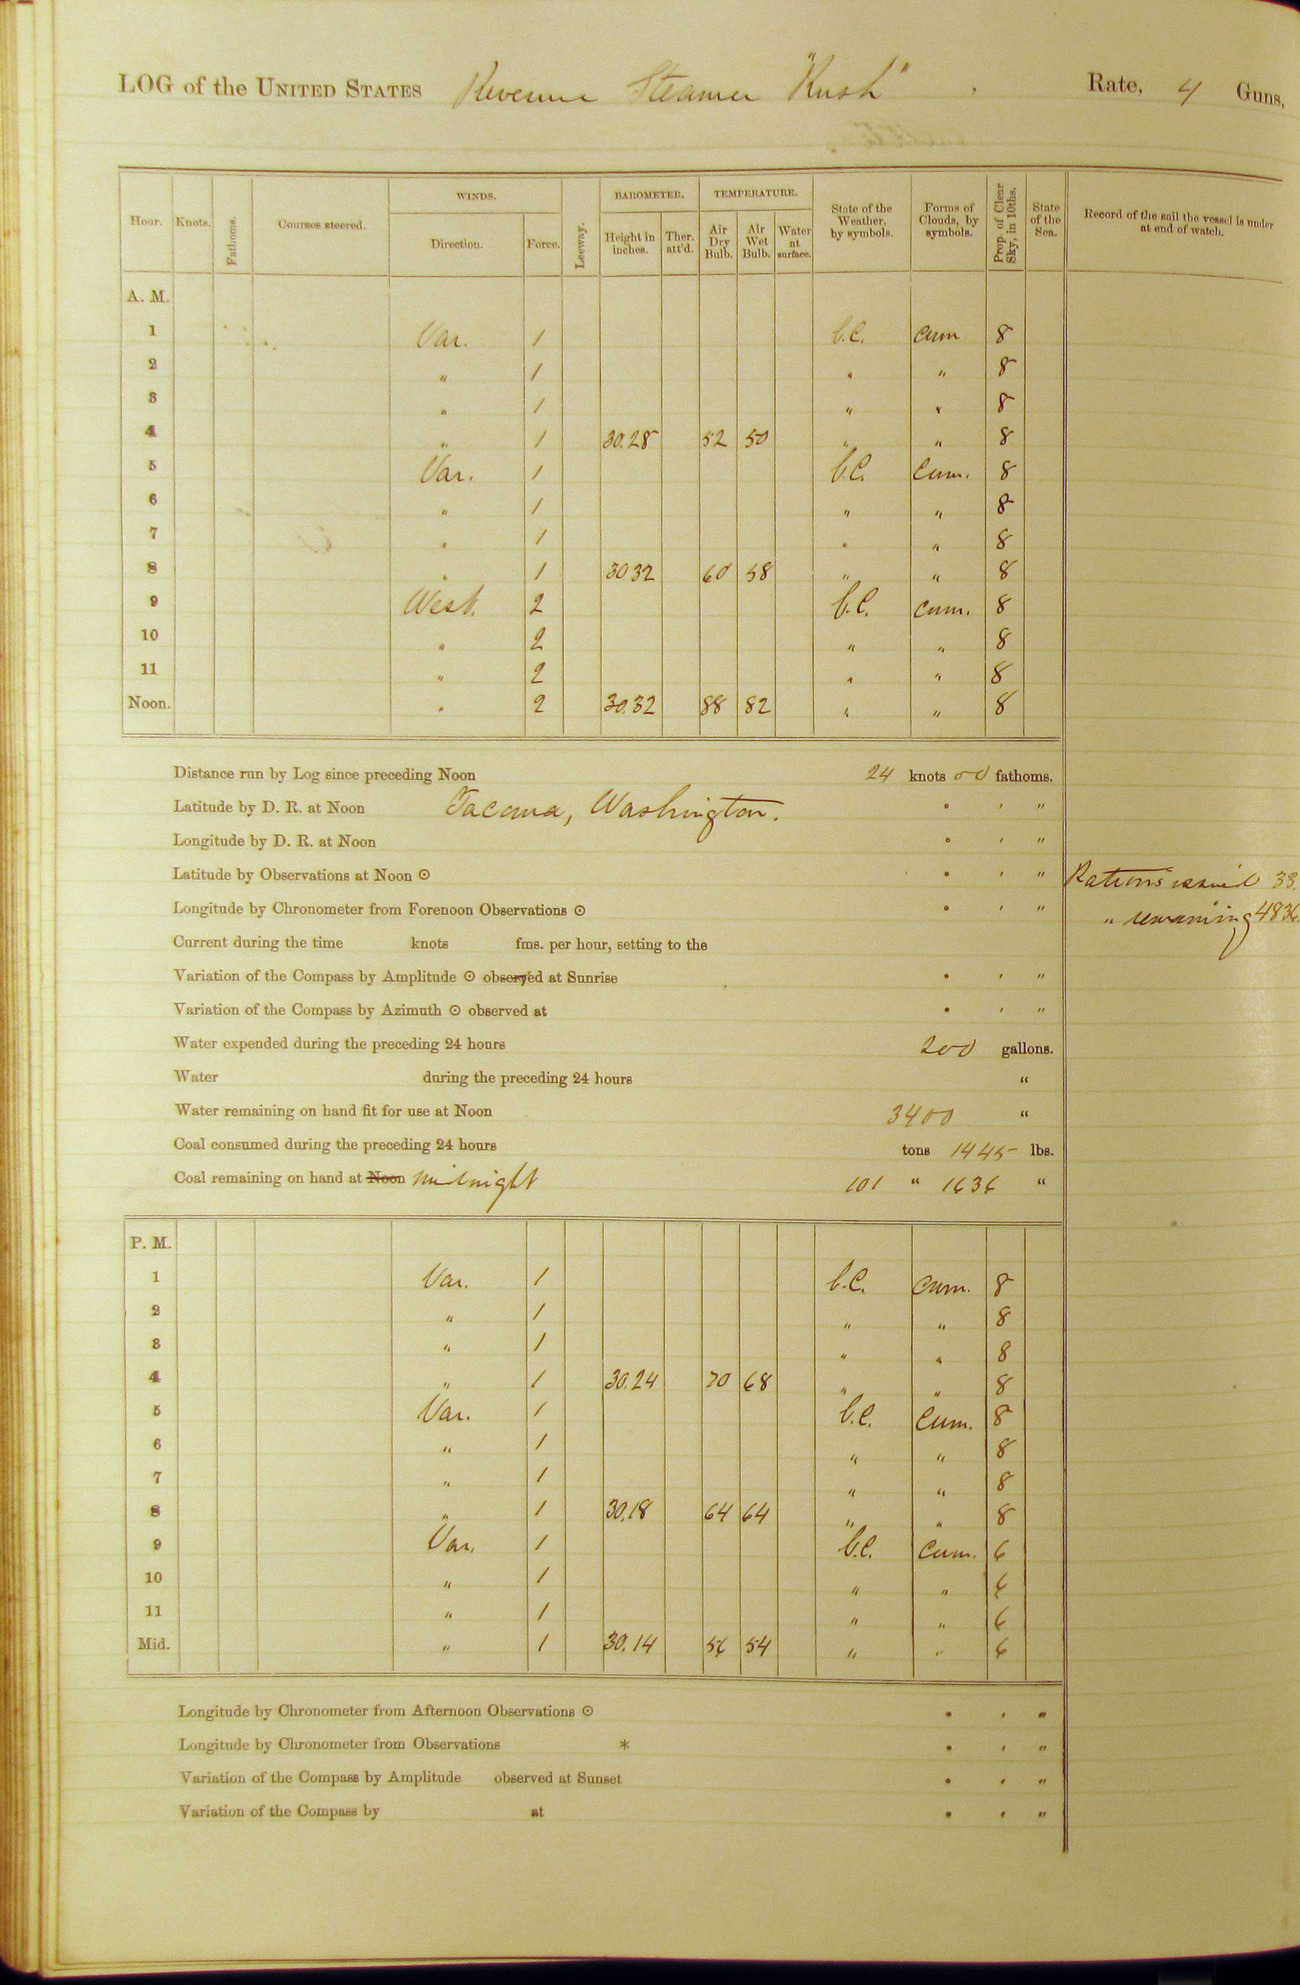 LOG of the UNITED STATES Revenue Steamer "Rush", Rate, 4 Guns,
Hour. Knots. Fathoms. Courses steered. WINDS. Direction. Force. Leeway. BAROMETER. Height in inches. Ther. att'd. TEMPERATURE. Air Dry Bulb. Air Wet Bulb. Water at surface. State of the Weather, by symbols. Forms of Clouds, by symbols. Prop. of Clear Sky, in 10ths. State of the Sea. Record of the sail the vessel is under at end of watch.
A. M.
1 Var. 1 b.c. Cum 8
2 " 1 " " 8
3 " 1 " " 8
4 " 1 30.28 52 50 " " 8
5 Var. 1 b.c. Cum. 8
6 " 1 " " 8
7 " 1 " " 8
8 " 1 30 32 60 58 " " 8
9 West. 2 b.c. Cum. 8
10 " 2 " " 8
11 " 2 " " 8
Noon. " 2 30.32 88 82 " " 8
Distance run by Log since preceding Noon 24 knots 00 fathoms.
Latitude by D. R. at Noon Tacoma, Washington. ° ′ ″
Longitude by D. R. at Noon ° ′ ″
Latitude by Observations at Noon ⊙ ° ′ ″ Rations issued 33.
Longitude by Chronometer from Forenoon Observations ⊙ ° ′ ″ " remaining 4836.
Current during the time knots fms. per hour, setting to the
Variation of the Compass by Amplitude ⊙ observed at Sunrise ° ′ ″
Variation of the Compass by Azimuth ⊙ observed at ° ′ ″
Water expended during the preceding 24 hours 200 gallons.
Water during the preceding 24 hours "
Water remaining on hand fit for use at Noon 3400 "
Coal consumed during the preceding 24 hours tons 1445 lbs.
Coal remaining on hand at Noon midnight 101 " 1636 "
P. M.
1 Var. 1 b.c. Cum. 8
2 " 1 " " 8
3 " 1 " " 8
4 " 1 30.24 70 68 " " 8
5 Var. 1 b.c. Cum. 8
6 " 1 " " 8
7 " 1 " " 8
8 " 1 30.18 64 64 " " 8
9 Var. 1 b.c. Cum. 6
10 " 1 " " 6
11 " 1 " " 6
Mid. " 1 30.14 56 54 " " 6
Longitude by Chronometer from Afternoon Observations ⊙ ° ′ ″
Longitude by Chronometer from Observations * ° ′ ″
Variation of the Compass by Amplitude observed at Sunset ° ′ ″
Variation of the Compass by at ° ′ ″